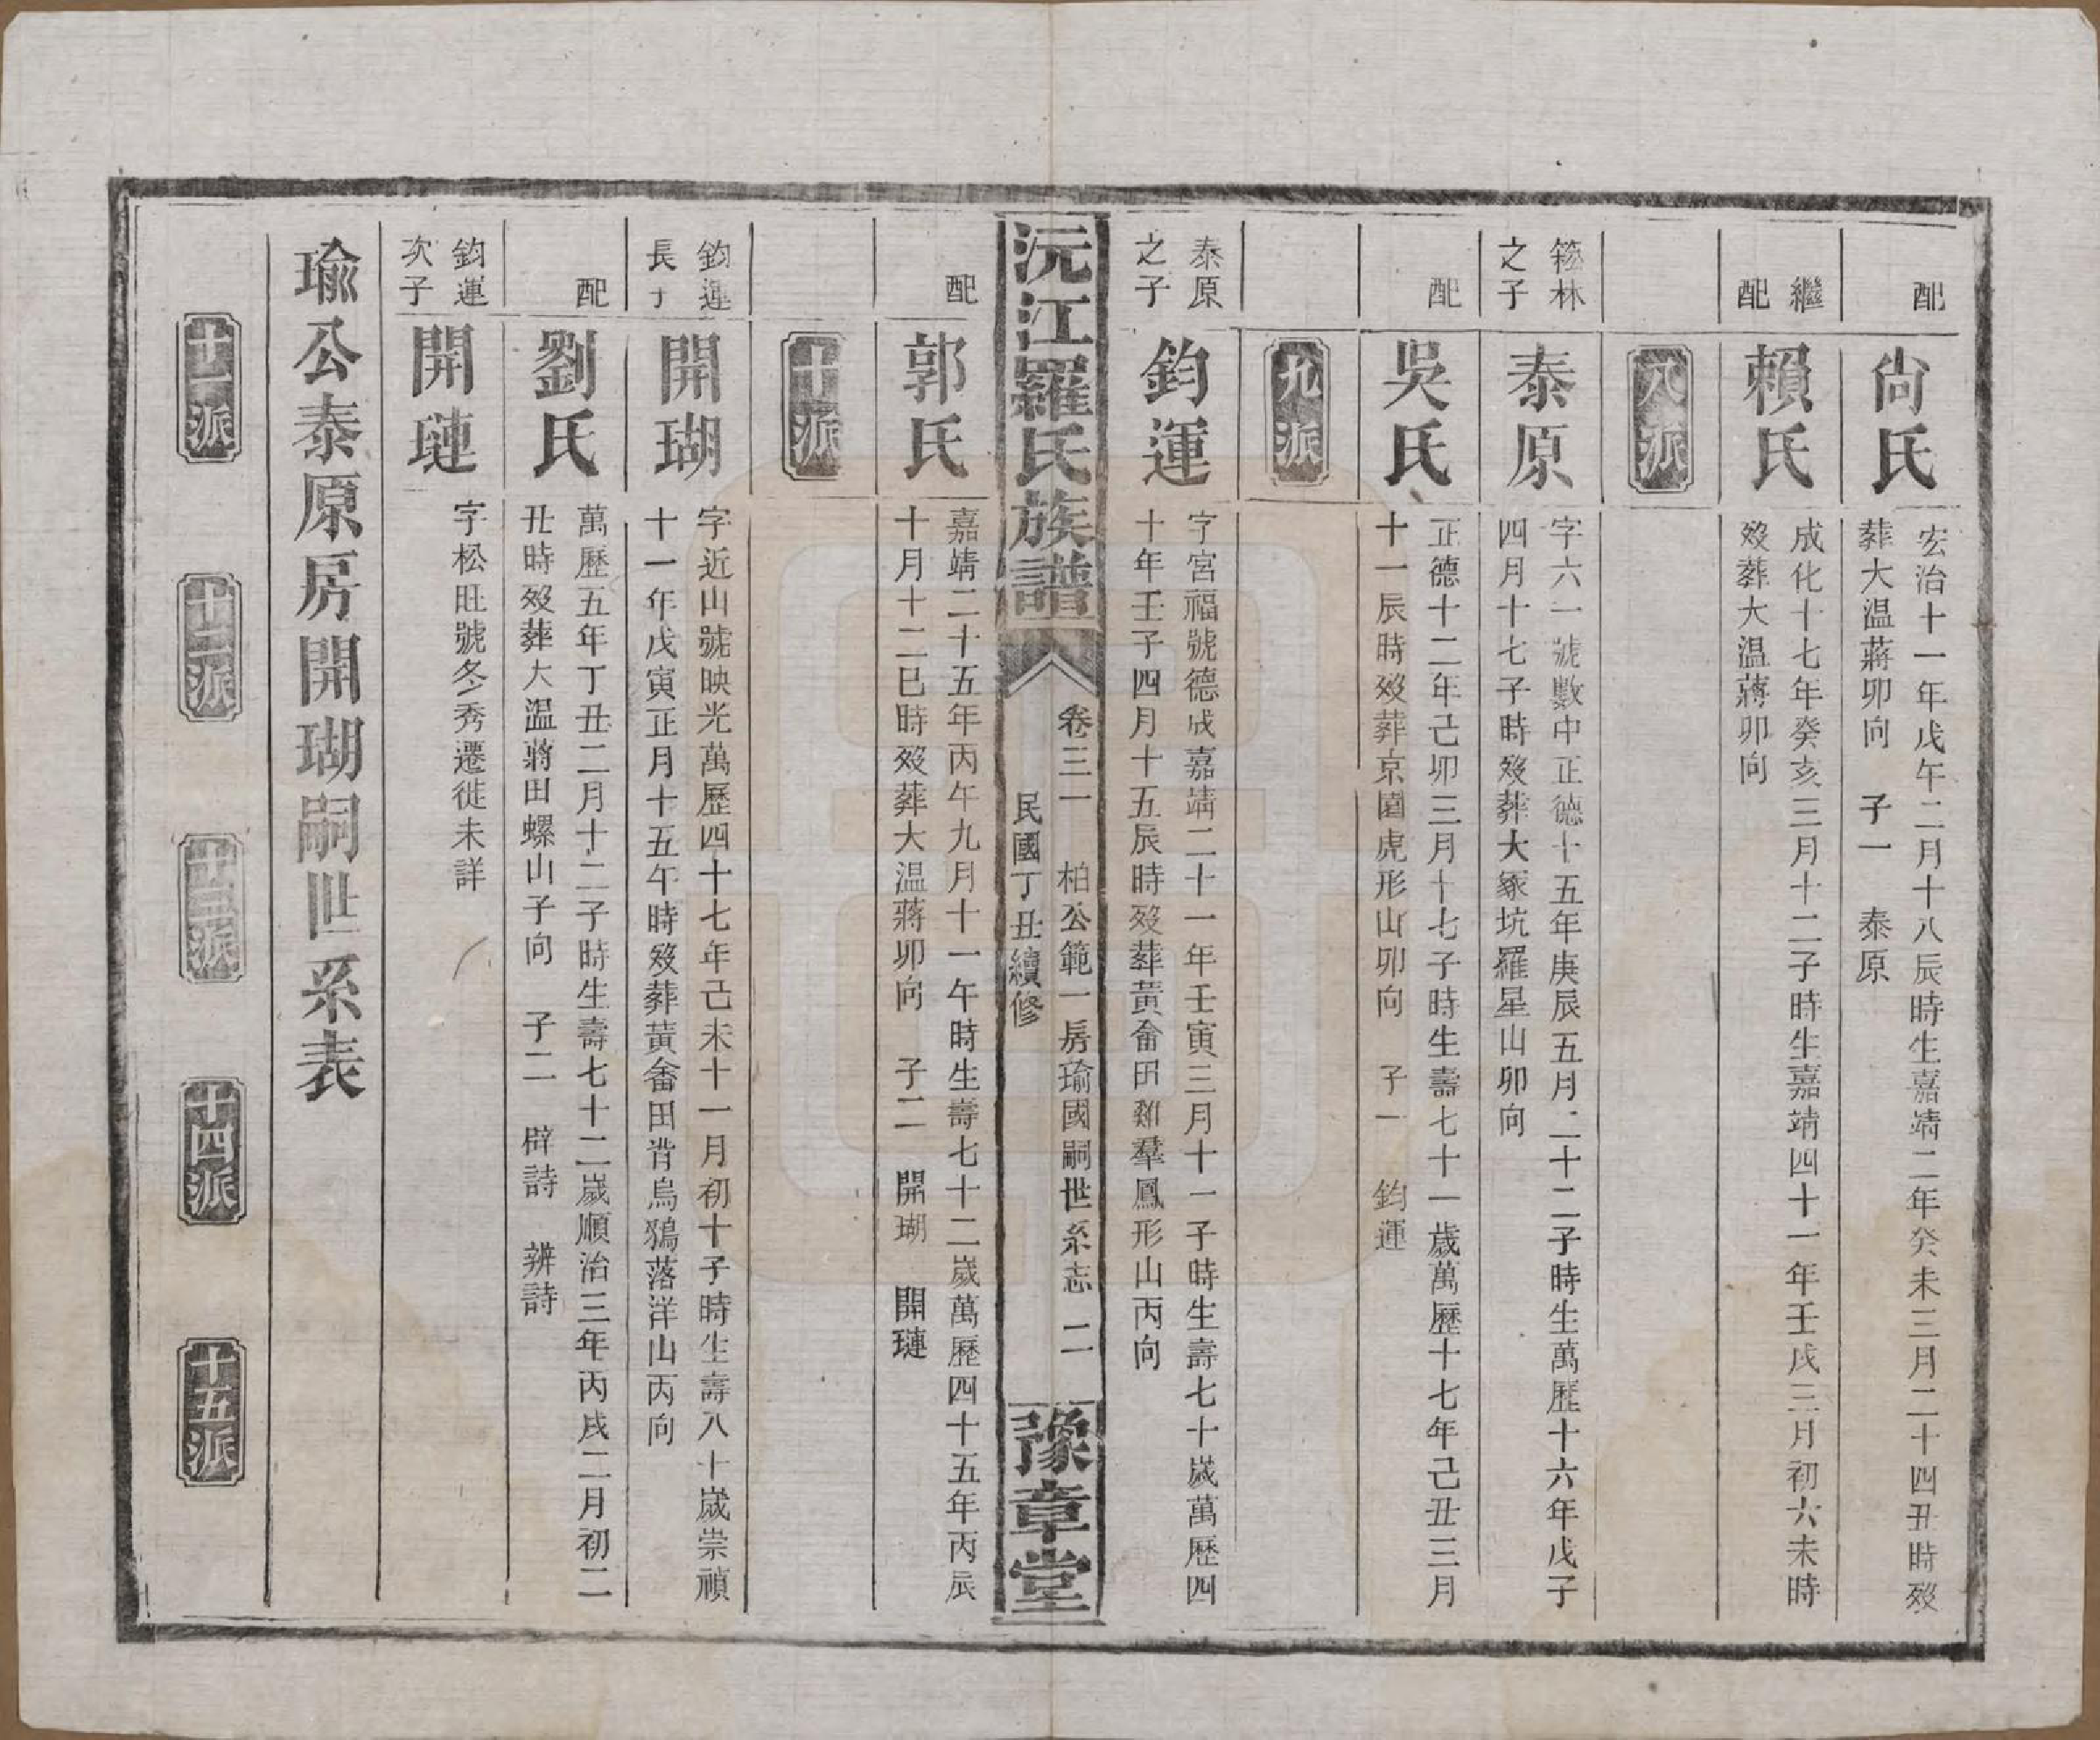 配
尙氏
宏治十一年戊午二月十八辰時生嘉靖二年癸未三月二十四丑時歿
葬大温蔣卯向 子一 泰原
繼
配
賴氏
成化十七年癸亥三月十二子時生嘉靖四十一年壬戌三月初六未時
歿葬大温蔣卯向
八派
箊林
之子
泰原
字六一號數中正德十五年庚辰五月二十二子時生萬歷十六年戊子
四月十七子時歿葬大豖坑羅星山卯向
配
吳氏
正德十二年己卯三月十七子時生壽七十一歲萬歷十七年己丑三月
十一辰時歿葬京園虎形山卯向 子一 鈞運
九派
泰原
之子
鈞運
字宮福號德成嘉靖二十一年壬寅三月十一子時生壽七十歲萬歷四
十年壬子四月十五辰時歿葬黃畬田雞羣鳳形山丙向
沅江羅氏族譜
卷三一 柏公範一房瑜國嗣世系志 二
民國丁丑續修
豫章堂
配
郭氏
嘉靖二十五年丙午九月十一午時生壽七十二歲萬歷四十五年丙辰
十月十二巳時歿葬大温蔣卯向 子二 開瑚 開璉
十派
鈞運
長子
開瑚
字近山號映光萬歷四十七年己未十一月初十子時生壽八十歲崇禎
十一年戊寅正月十五午時歿葬黃畬田背烏鴉落洋山丙向
配
劉氏
萬歷五年丁丑二月十二子時生壽七十二歲順治三年丙戌二月初二
丑時歿葬大温蔣田螺山子向 子二 辟詩 辨詩
鈞運
次子
開璉
字松旺號冬秀遷徙未詳
瑜公泰原房開瑚嗣世系表
十一派
十二派
十三派
十四派
十五派